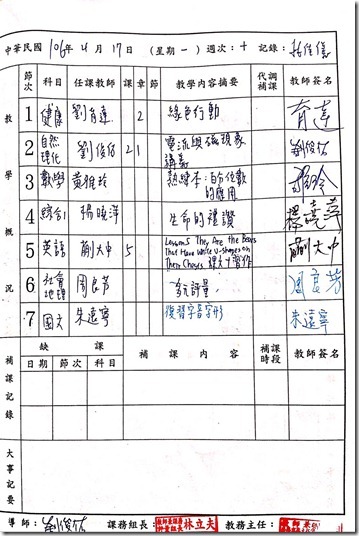 中華民國 106年 4月 17日 (星期一) 週次：十 記錄：
教學概況
節次 科目 任課教師 課 章 節 教學內容摘要 代調補課 教師簽名
1 健康 劉育達 2 綠色行動 育達
2 自然理化 劉俊佑 2 1 電流與磁現象 講義 劉俊佑
3 數學 黃雅玲
4 綜合 楊曉萍 生命的禮讚 楊曉萍
5 英語 蒯大中 5 Lesson 5 They Are the Bears That Have White V-shapes on Their Chests 蒯大中
6 社會地理 周良芳 多元評量 周良芳
7 國文 朱遠寧 復習字音字形 朱遠寧
補課記錄
缺課 補課內容 補課時段 教師簽名
日期 節次 科目
大事記要
導師：劉俊佑 課務組長：林立夫 教務主任：